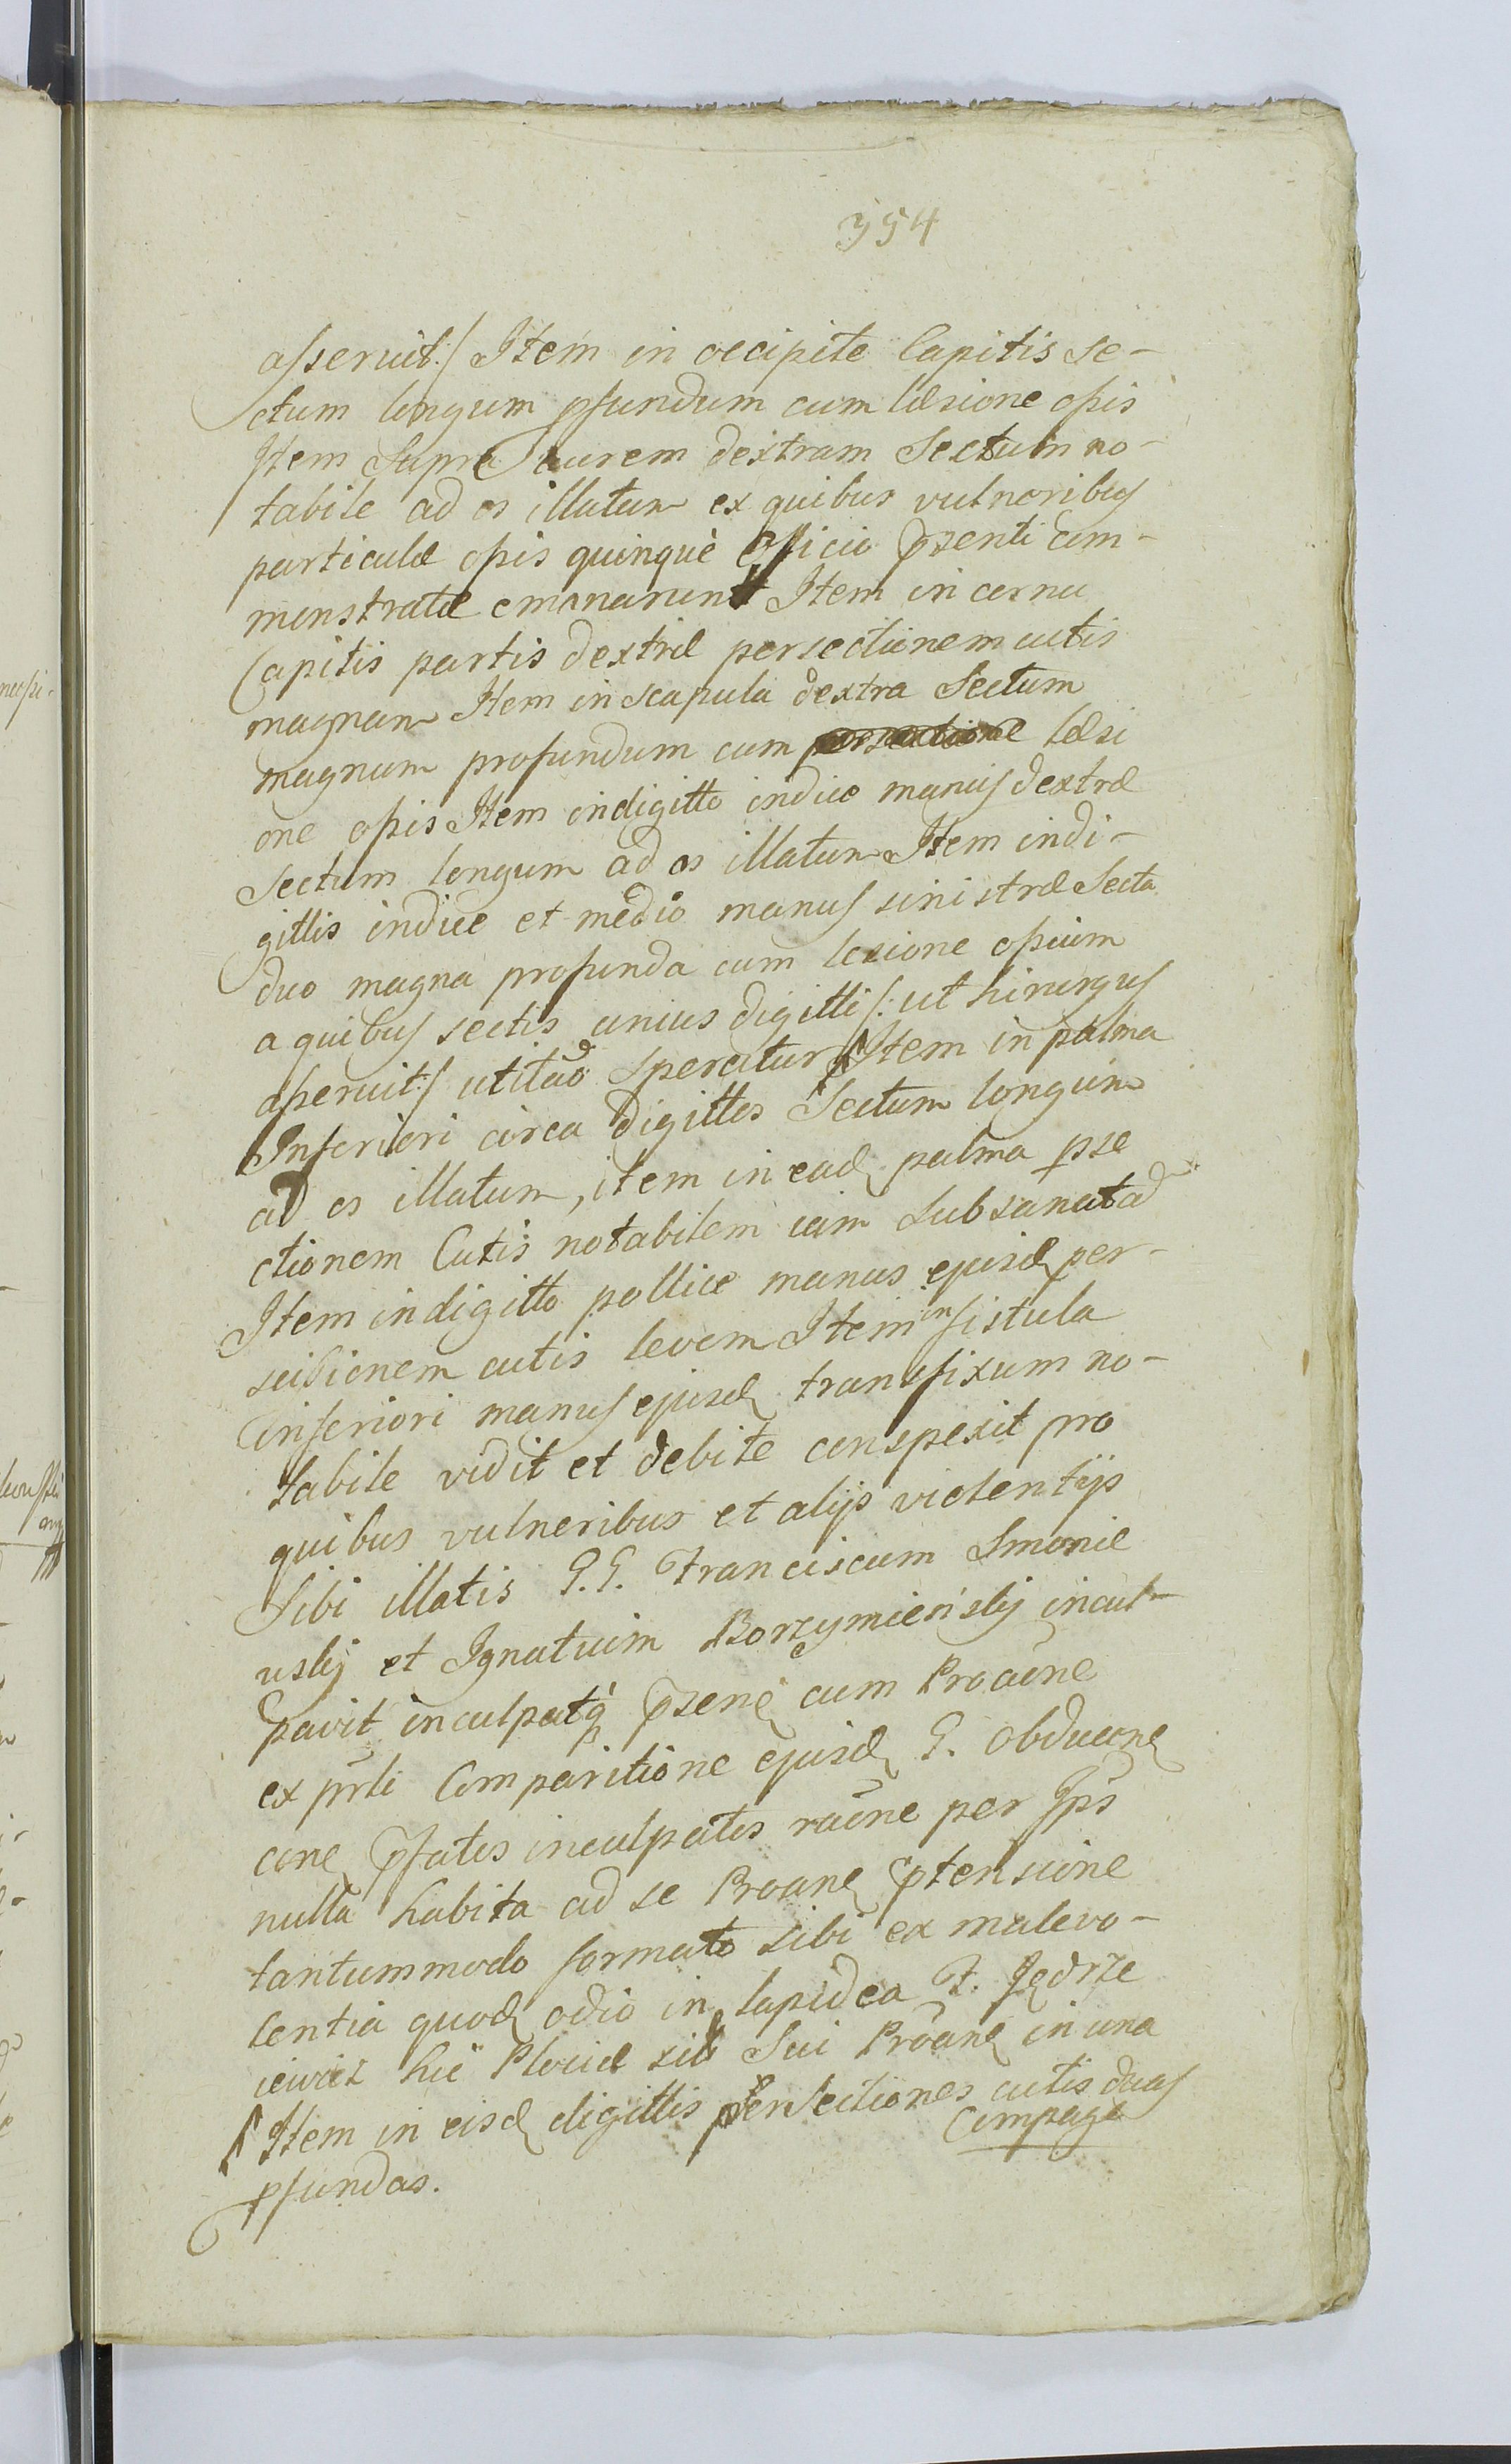 354
asseruit:/ Item in occipite Capitis se-
ctum longum pfundum cum læsione ossis
Item Supra aurem dextram Sectum no-
tabile ad os illatum ex quibus vulneribus
particulæ ossis quinque officio pzenti com-
monstratæ emanarunt Item in cornu
Capitis partis dextræ persectionem cutis
magnam Item in scapula dextra Sectum
magnum profundum cum læsi
one ossis Item in digitto indice manus dextræ
Sectum longum ad os illatum Item in di-
gittis indice et medio manus sinistræ Secta
duo magna profunda cum lesione ossium
a quibus sectis unius digitti /: ut hirurgus
asseruit:/ utilitas Speratur Item in palma
Inferiori circa digittos Sectum longum
ad os illatum, item in ead palma pse
ctionem Cutis notabilem iam subsanatā
Item in digitto pollice manus ejusd per-
scisionem cutis levem Item in fistula
inferiori manus ejusd transfixum no-
tabile vidit et debite conspexit pro
quibus vulneribus et alijs violentijs
Sibi illatis G.G. Franciscum Smonie
wskij et Ignatium Borzymieńskij incul-
pavit inculpatq pzene cum Proaōne
ex pňti Comparitione ejusd G. Obducen
cone pfatos inculpatos raōne per Ipš
nulla habita ad se Proane ptensione
tantummodo formato sibi ex malevo-
lentia quod odio in lapidea F. Jędrze
iewicz hic Plociæ sit Sui Proane in una
Compage
Item in eisd digittis persectiones cutis duas
pfundas.